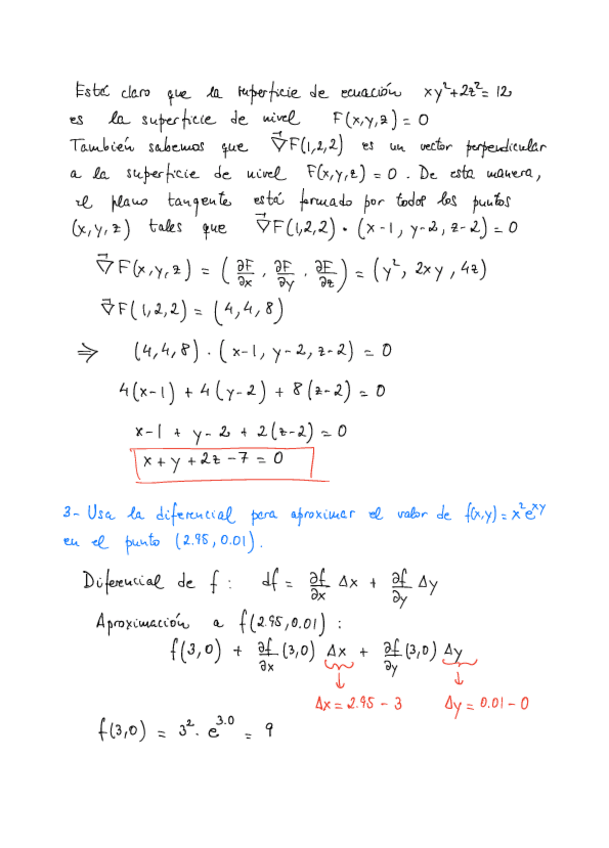 Está claro que la superficie de ecuación xy²+2z²=12
es la superficie de nivel F(x,y,z)=0
También sabemos que ∇⃗F(1,2,2) es un vector perpendicular
a la superficie de nivel F(x,y,z)=0. De esta manera,
el plano tangente está formado por todos los puntos
(x,y,z) tales que ∇⃗F(1,2,2)·(x-1, y-2, z-2)=0
∇⃗F(x,y,z) = (∂F/∂x, ∂F/∂y, ∂F/∂z) = (y², 2xy, 4z)
∇⃗F(1,2,2) = (4,4,8)
⇒ (4,4,8)·(x-1, y-2, z-2) = 0
4(x-1) + 4(y-2) + 8(z-2) = 0
x-1 + y-2 + 2(z-2) = 0
x+y+2z-7=0
3- Usa la diferencial para aproximar el valor de f(x,y)=x²e^xy
en el punto (2.95, 0.01).
Diferencial de f: df = ∂f/∂x Δx + ∂f/∂y Δy
Aproximación a f(2.95,0.01):
f(3,0) + ∂f/∂x (3,0) Δx + ∂f/∂y (3,0) Δy
↓ ↓
Δx = 2.95 - 3 Δy = 0.01 - 0
f(3,0) = 3². e^3.0 = 9